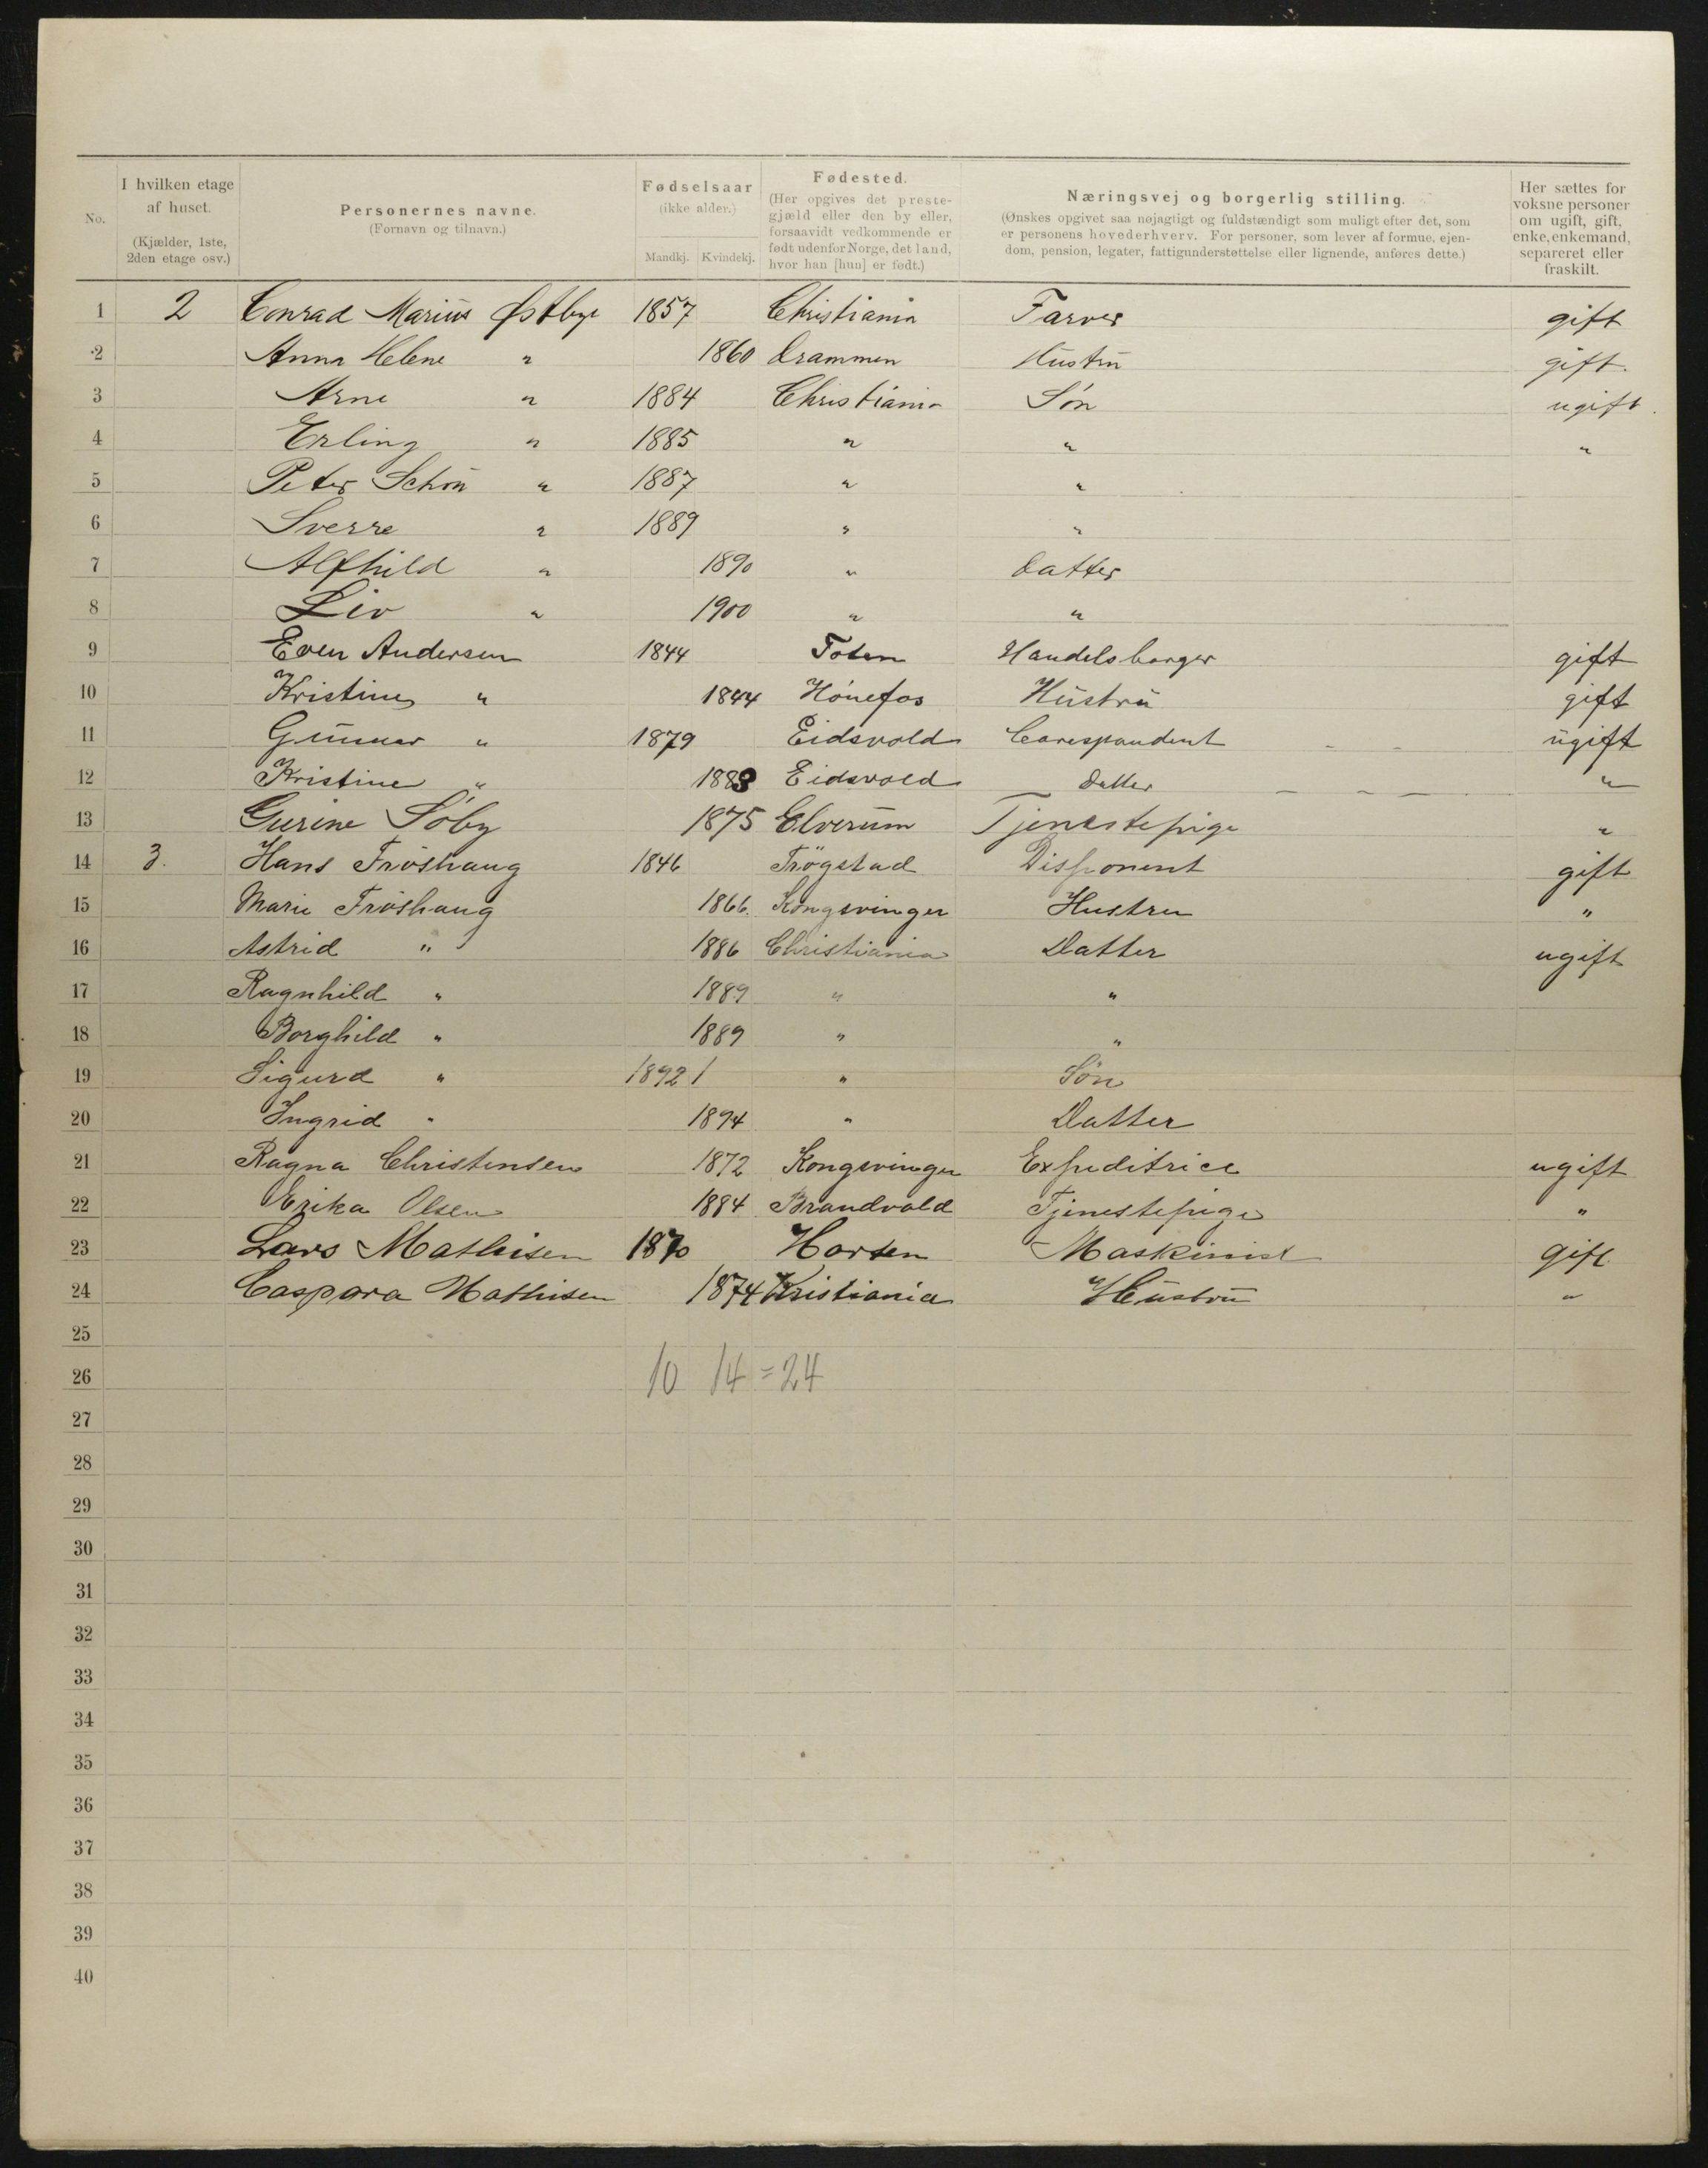 No.
I hvilken etage af huset. (Kjælder, 1ste, 2den etage osv.)
Personernes navne. (Fornavn og tilnavn.)
Fødselsaar (ikke alder.) Mandkj. Kvindekj.
Fødested. (Her opgives det prestegjæld eller den by eller, forsaavidt vedkommende er født udenfor Norge, det land, hvor han [hun] er født.)
Næringsvej og borgerlig stilling. (Ønskes opgivet saa nøjagtigt og fuldstændigt som muligt efter det, som er personens hovederhverv. For personer, som lever af formue, ejendom, pension, legater, fattigunderstøttelse eller lignende, anføres dette.)
Her sættes for voksne personer om ugift, gift, enke, enkemand, separeret eller fraskilt.
1 2 Conrad Marius Østbye 1857 Christiania Farver gift
2 Anna Helene " 1860 Drammen Hustru gift.
3 Arne " 1884 Christiania Søn ugift.
4 Erling " 1885 " " "
5 Peter Schøn " 1887 " "
6 Sverre " 1889 " "
7 Alfhild " 1890 " Datter
8 Liv " 1900 " "
9 Even Andersen 1844 Toten Handelsborger gift
10 Kristine " 1844 Hönefos Hustru gift
11 Gunnar " 1879 Eidsvold Corespondent - - ugift
12 Kristine " 1883 Eidsvold Datter - - - "
13 Gurine Söby 1875 Elverum Tjenestepige "
14 3. Hans Fröshaug 1846 Trögstad Disponent gift
15 Marie Fröshaug 1866. Kongsvinger Hustru "
16 Astrid " 1886 Christiania Datter ugift
17 Ragnhild " 1889 " "
18 Borghild " 1889 " "
19 Sigurd " 1892 1 " Sön
20 Ingrid " 1894 " Datter
21 Ragna Christensen 1872 Kongsvinger Expeditrice ugift
22 Erika Olsen 1884 Brandvold Tjenestepige "
23 Lars Mathisen 1870 Horten Maskinist gift
24 Caspara Mathisen 1874 Kristiania Hustru "
25
26 10 14 = 24
27
28
29
30
31
32
33
34
35
36
37
38
39
40